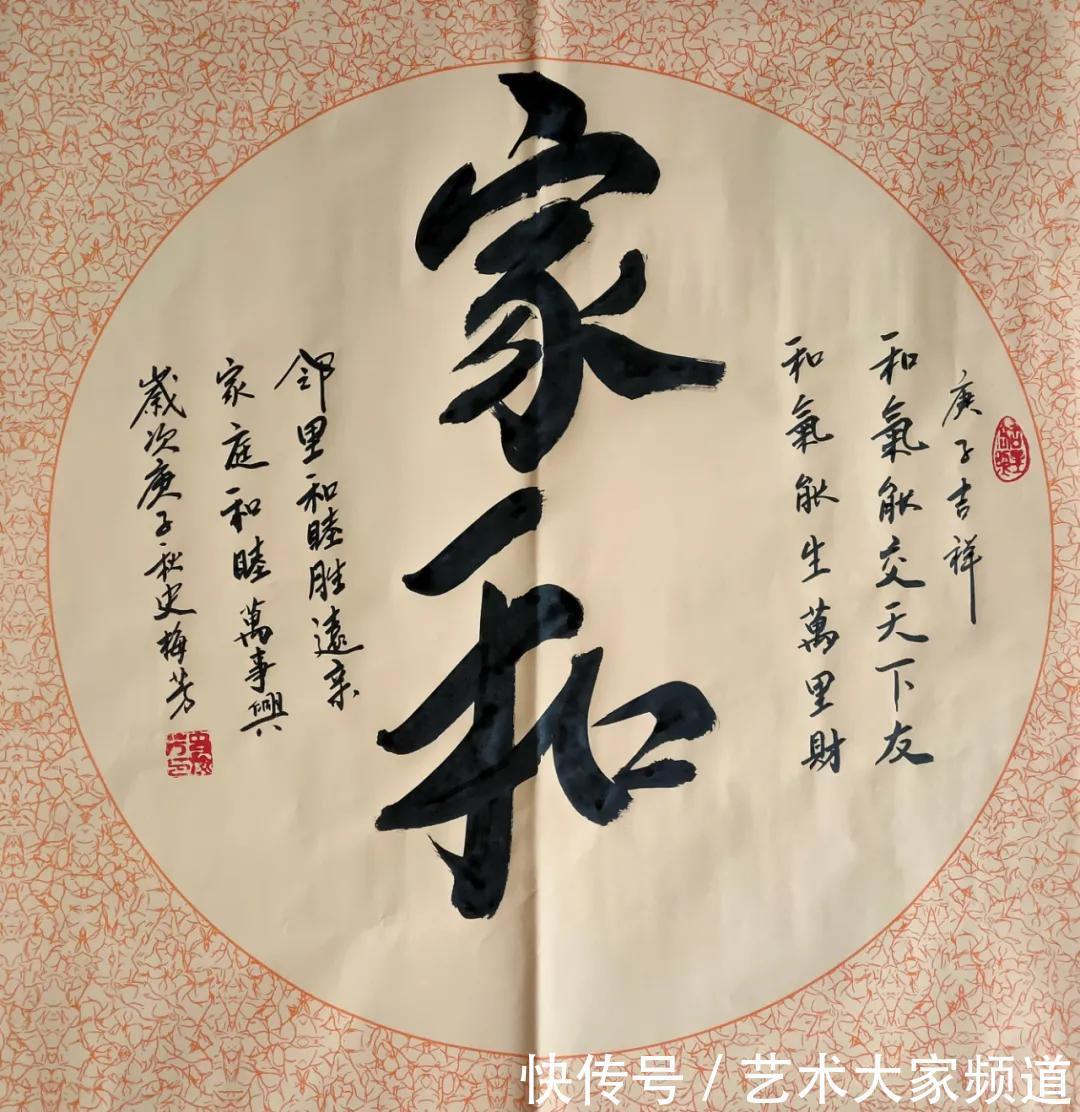 庚子吉祥
和氣能交天下友
和氣能生萬里財
家和
邻里和睦胜遠亲
家庭和睦萬事興
歲次庚子秋史梅芳
快传号 / 艺术大家频道